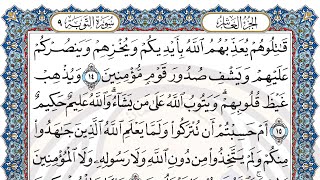 الجزء العاشر سورة التوبة ٩
قَٰتِلُوهُمْ يُعَذِّبْهُمُ ٱللَّهُ بِأَيْدِيكُمْ وَيُخْزِهِمْ وَيَنصُرْكُمْ
عَلَيْهِمْ وَيَشْفِ صُدُورَ قَوْمٍ مُّؤْمِنِينَ ١٤ وَيُذْهِبْ
غَيْظَ قُلُوبِهِمْ وَيَتُوبُ ٱللَّهُ عَلَىٰ مَن يَشَآءُ وَٱللَّهُ عَلِيمٌ حَكِيمٌ
١٥ أَمْ حَسِبْتُمْ أَن تُتْرَكُوا۟ وَلَمَّا يَعْلَمِ ٱللَّهُ ٱلَّذِينَ جَٰهَدُوا۟
مِنكُمْ وَلَمْ يَتَّخِذُوا۟ مِن دُونِ ٱللَّهِ وَلَا رَسُولِهِۦ وَلَا ٱلْمُؤْمِنِينَ